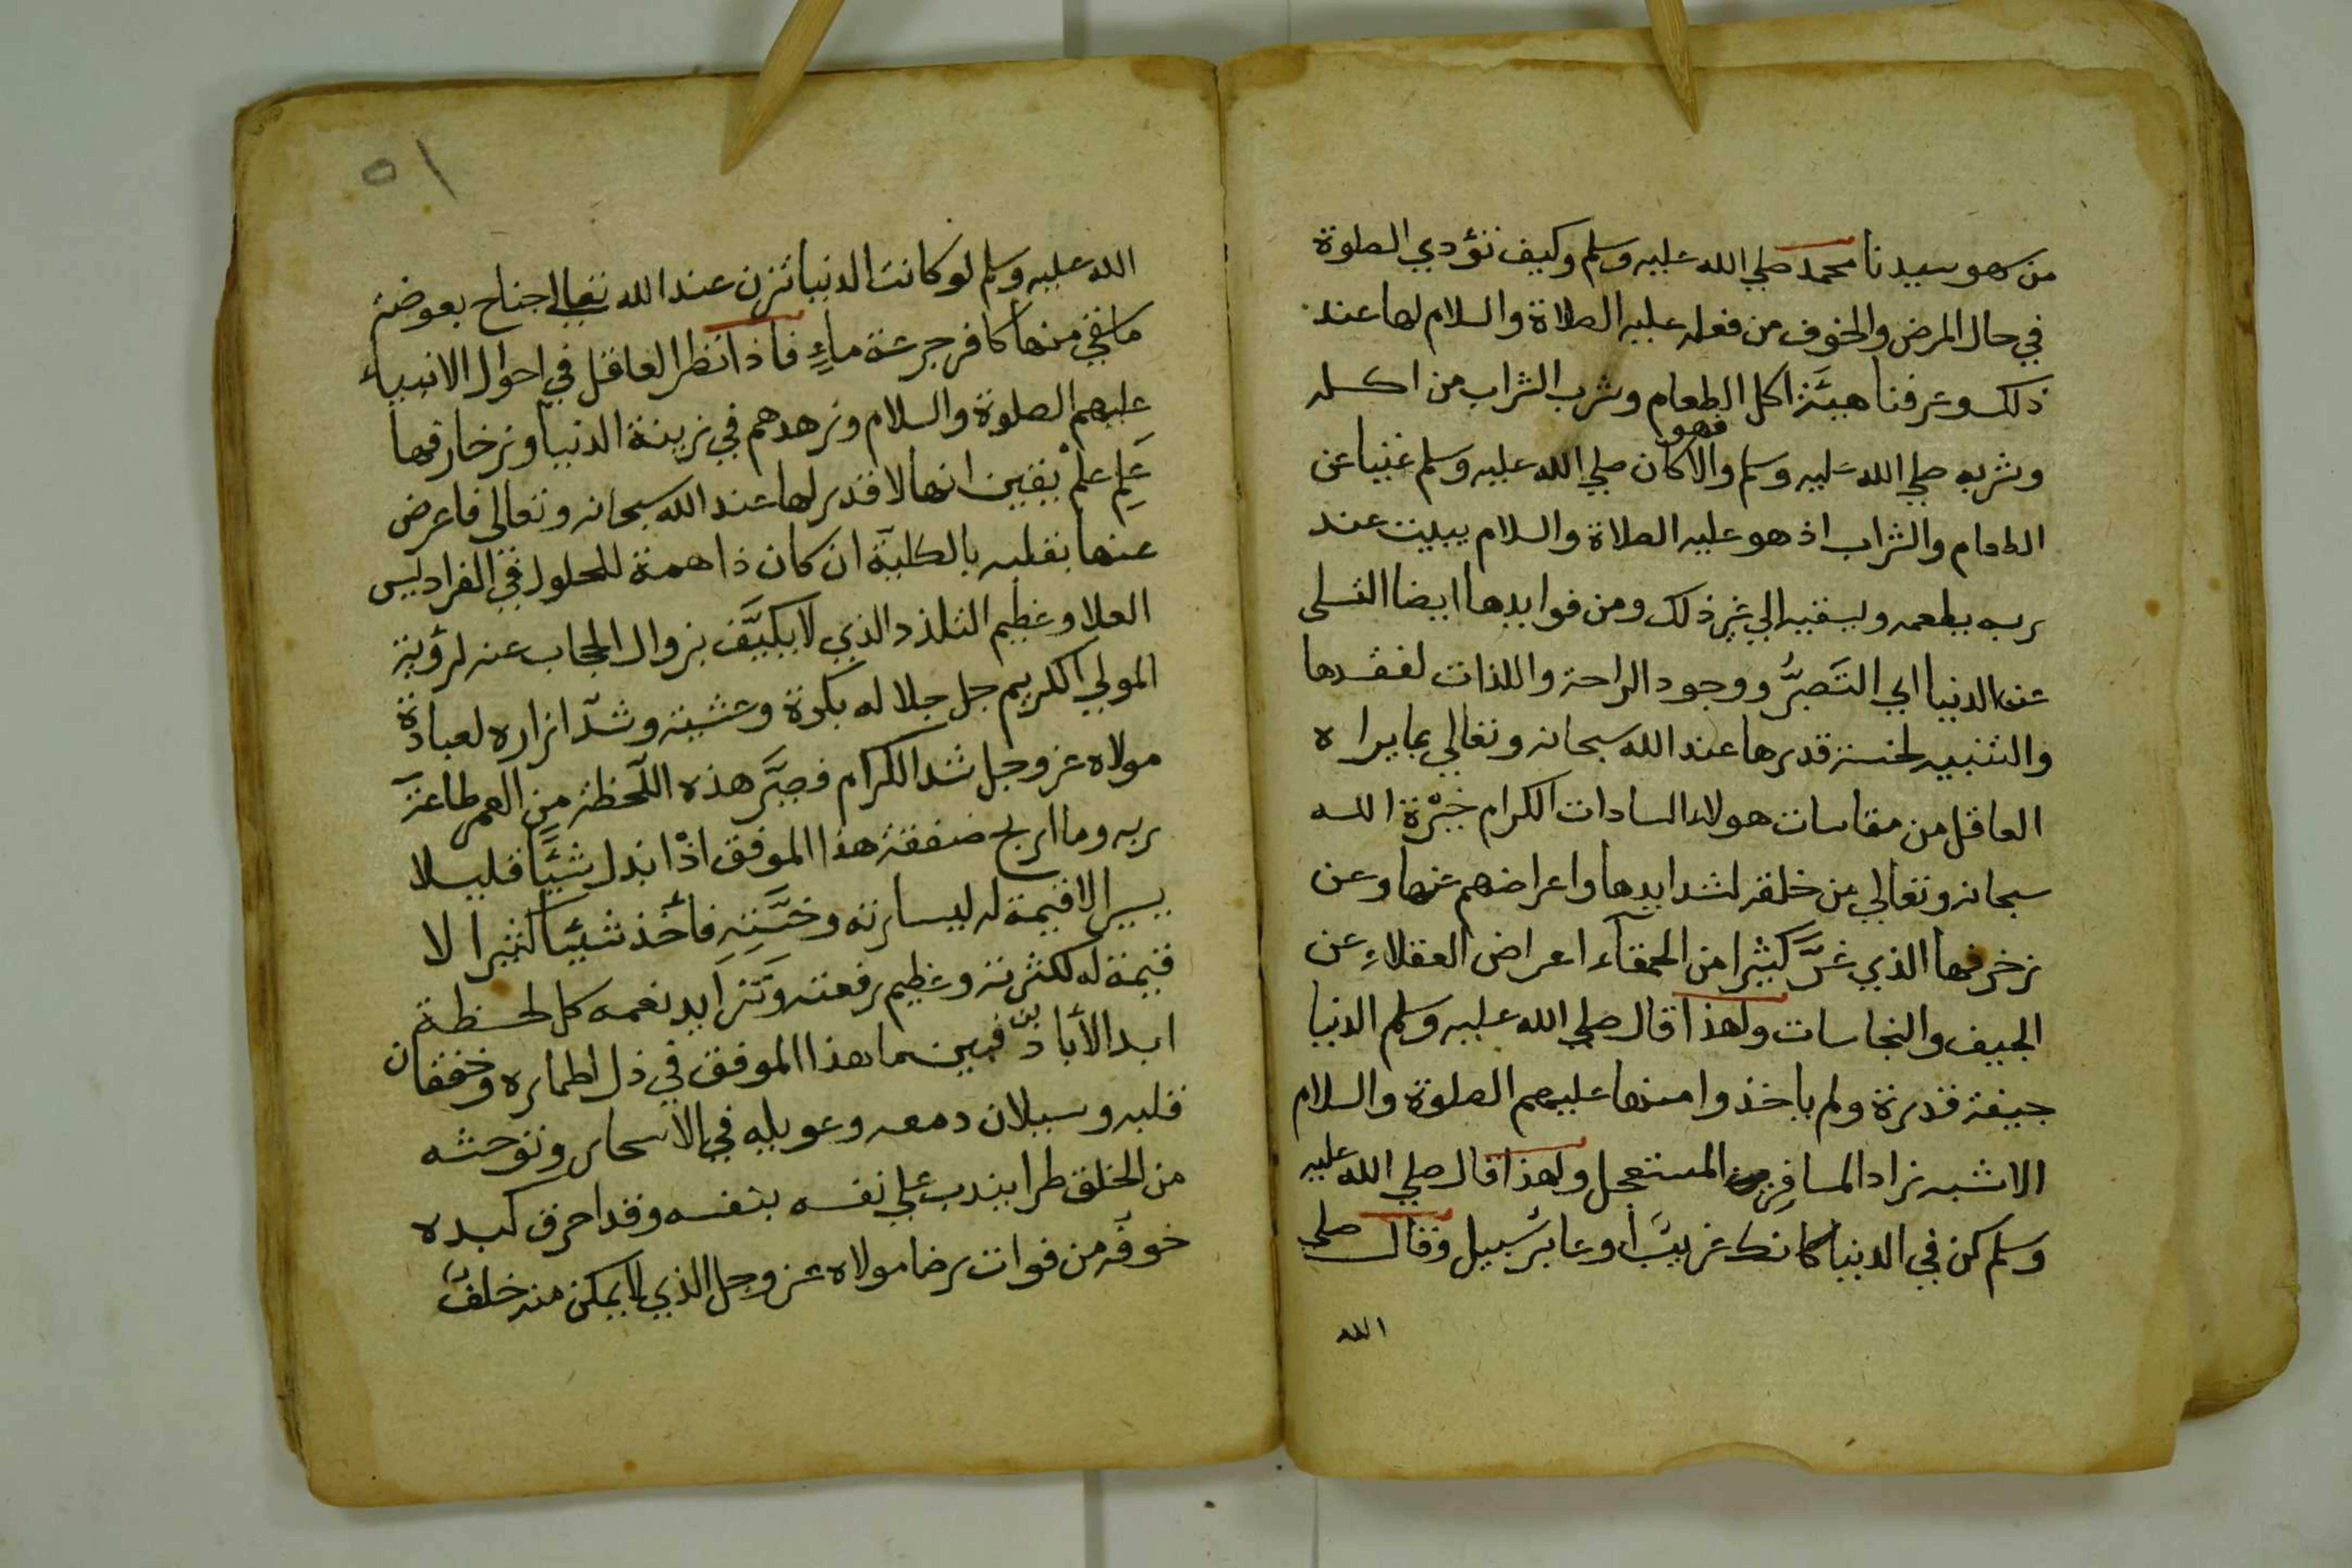 من سهو سيدنا محمد صلي الله عليه وسلم وكيف تؤدي الصلوة
في حال المرض والخوف من فعله عليه الصلاة والسلام لها عند
ذلك وعرفنا هيئة اكل الطعام وشرب الشراب من اكله
وشربه صلي الله عليه وسلم والا فهو كان صلي الله عليه وسلم غنيا عن
الطعام والشراب اذ هو عليه الصلاة والسلام يبيت عند
ربه يطعمه ويسقيه الي غير ذلك ومن فوايدها ايضا التسلي
عن الدنيا اي التَصبُّر ووجود الراحة واللذات لفقدها
والتنبيه لخسة قدرها عند الله سبحانه وتعالي بما يراه
العاقل من مقاسات هولاء السادات الكرام خِيْرَة الله
سبحانه وتعالي من خلقه لشدايدها واعراضهم عنها وعن
زخرفها الذي غرَّ كثيرا من الحمقاء اعراض العقلاءِ عن
الجيف والنجاسات ولهذا قال صلي الله عليه وسلم الدنيا
جيفة قذرة ولم ياخذوا منها عليهم الصلوة والسلام
الا شبه زاد المسافر المستعجل ولهذا قال صلي الله عليه
وسلم كن في الدنيا كانك غريبًا او عابر سبيل وقال صلي
الله
٥١
الله عليه وسلم لو كانت الدنيا تزن عند الله تعالي جناح بعوضة
ما سقي منها كافر جرعة ماءٍ فاذا نظر العاقل في احوال الانبياء
عليهم الصلوة والسلام وزهدهم في زينة الدنيا وزخارفها
عَلِم علمْ يقين انها لا قدر لها عند الله سبحانه وتعالي فاعرض
عنها بقلبه بالكلية ان كان ذا همة للحلول في الفراديس
العلا وعظيم التلذذ الذي لا يكيَّف بزوال الحجاب عنه لرؤية
المولي الكريم جل جلاله بكرة وعشية وشدّ ازاره لعبادة
مولاه عز وجل شد الكرام فصبَّر هذه اللحظة من العمر طاعة
ربه وما اربح صفقة هذا الموفق اذْ بذل شيئًا قليلا
يسيرا لا قيمة له ليسارته وخسَّتِه فأخذ شيئا كثيرا لا
قيمة له لكثرته وعظيم رفعته وتَزايد نعمه كل لحظة
ابد الأباد ين فبينما هذا الموفق في ذل اطماره وخفقان
قلبه وسيلان دمعه وعويله في الاسحار وتوحشه
من الخلق طرا يندب علي نفسه بنفسه وقد احرق كبده
خوفه من فوات رضا مولاه عز وجل الذي لا يمكن منه خلفٌ